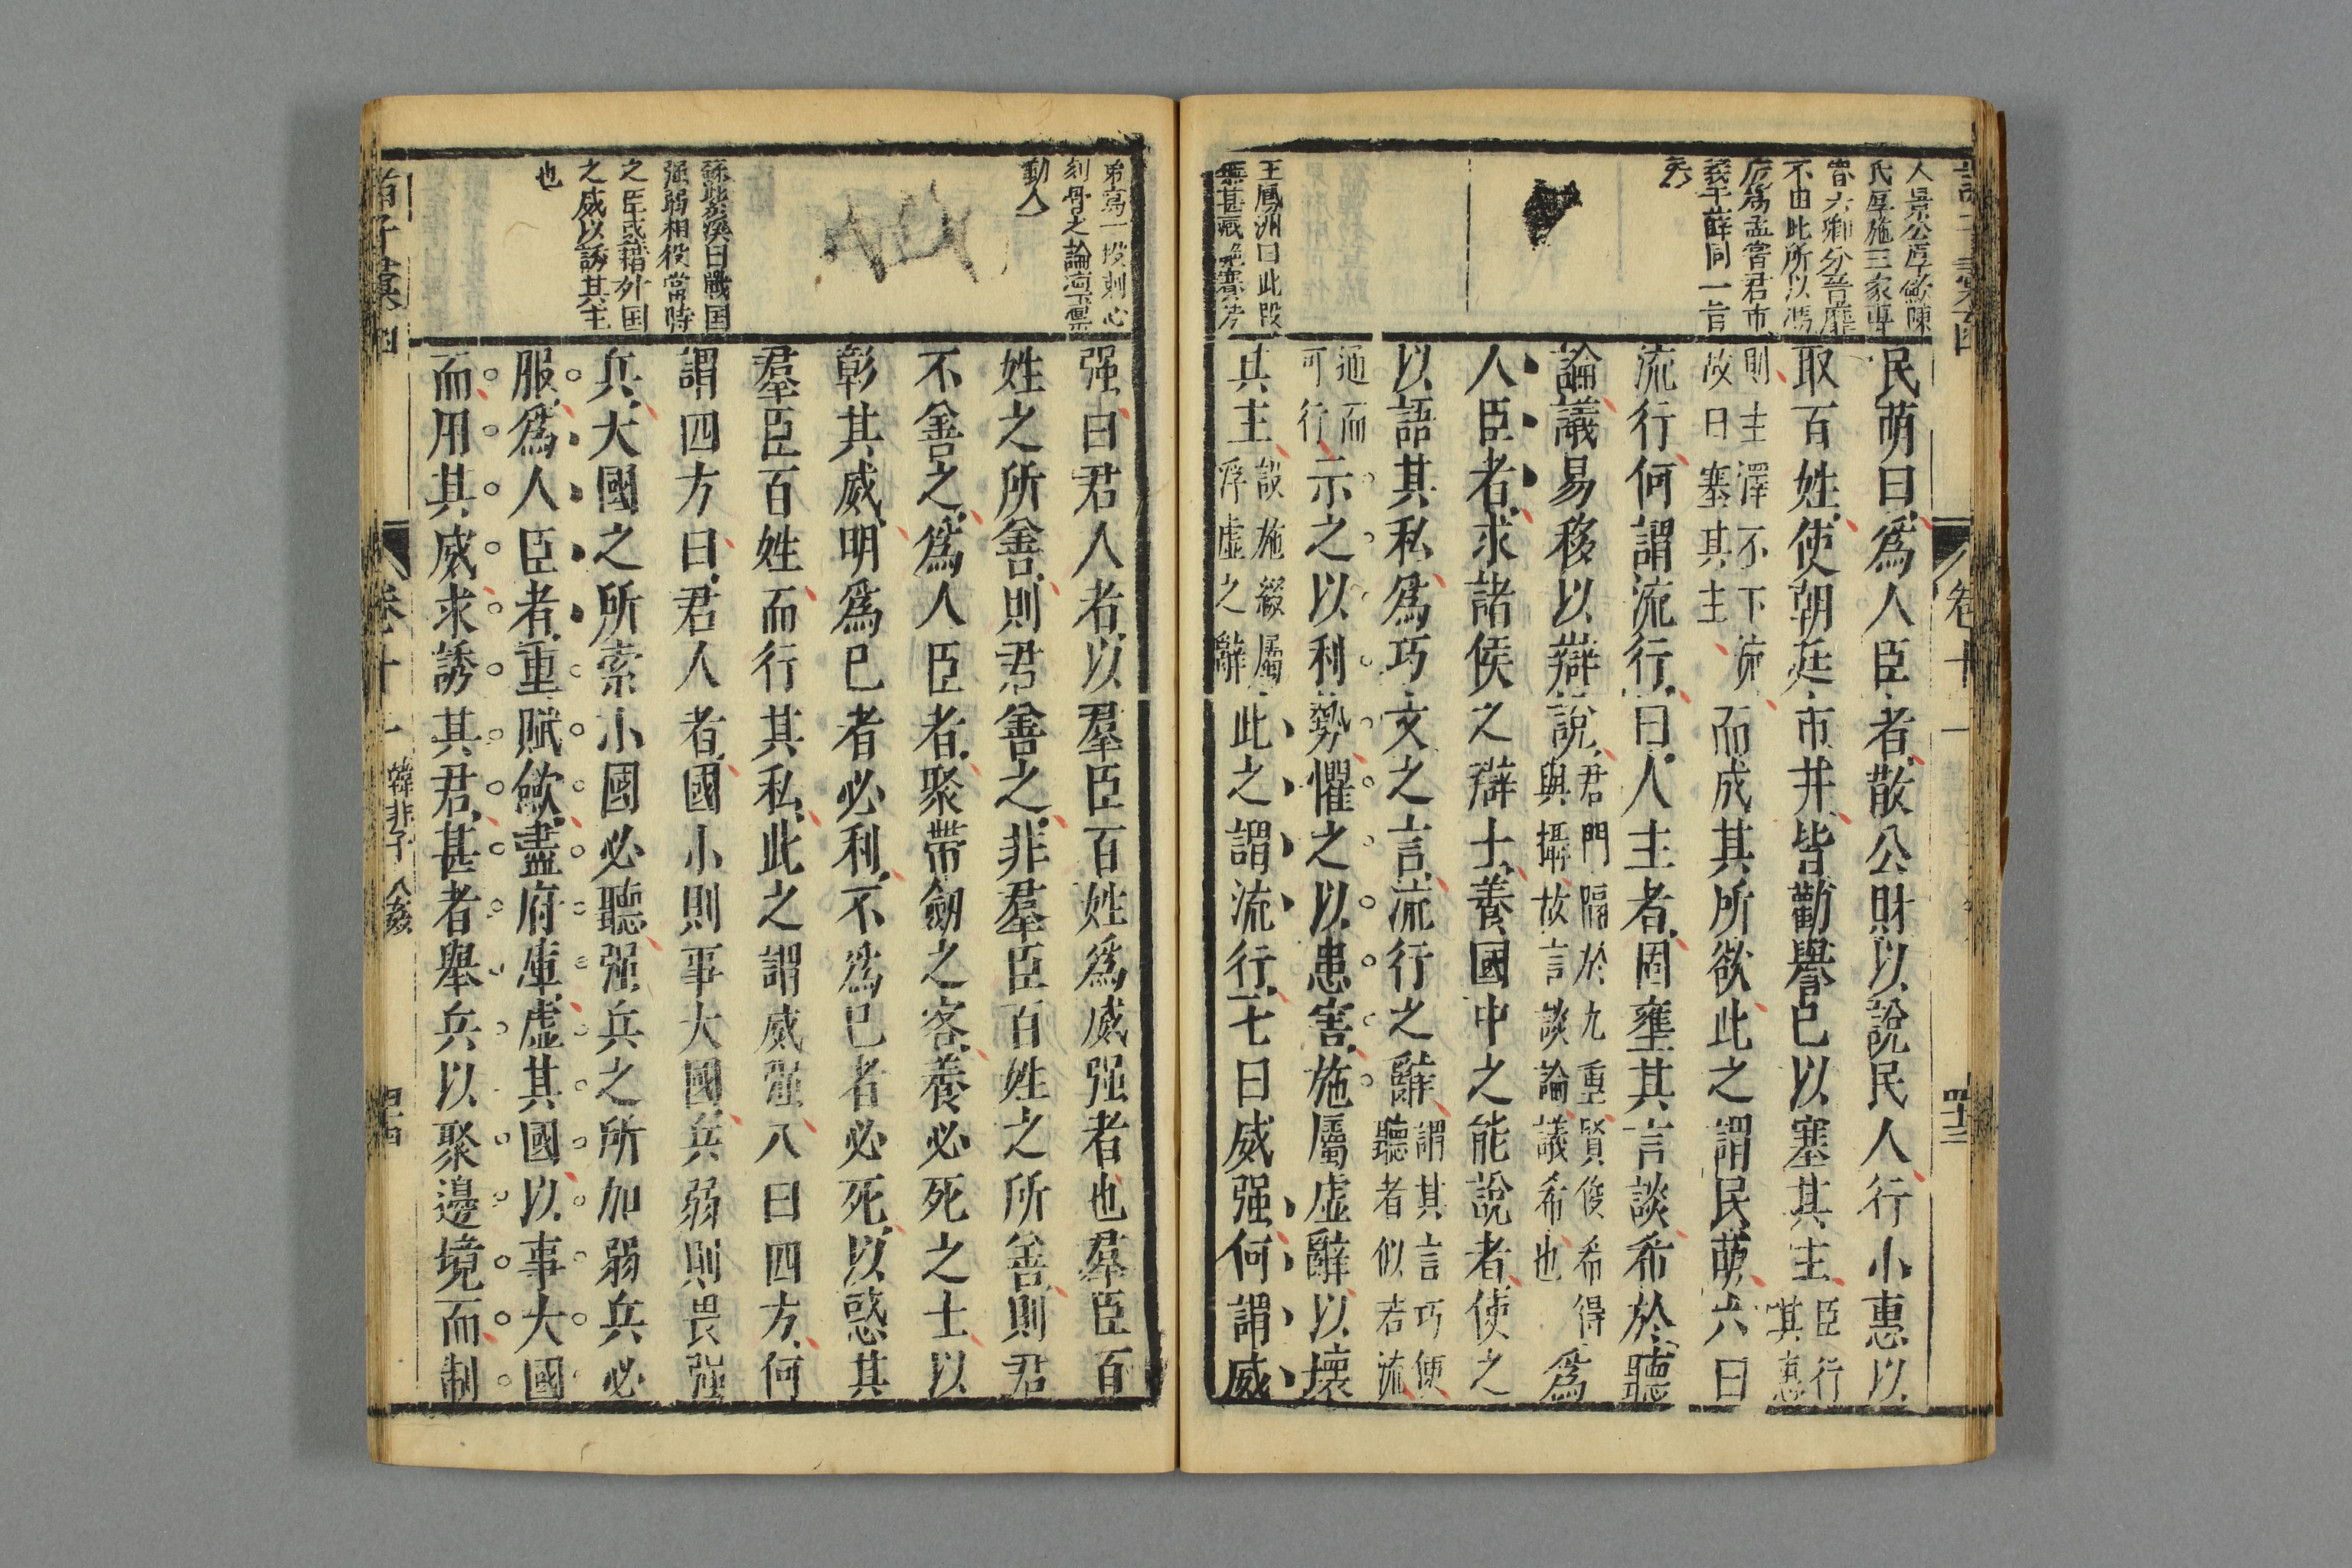 民萌曰爲人臣者散公財以說民人行小惠以
取百姓使朝廷市井皆勸譽已以塞其主臣行其惠
則主澤不下流故曰塞其主而成其所欲此之謂民萌六曰
流行何謂流行曰人主者固壅其言談希於聽
論議易移以辯說君門隔於九重賢俊希得與攝故言談論議希也爲
人臣者求諸侯之辯士養國中之能說者使之
以語其私爲巧文之言流行之辭謂其言巧便聽者似若流
通而可行示之以利勢懼之以患害施屬虛辭以壞
其主設施綴屬浮虛之辭此之謂流行七曰威强何謂威
人景公厚斂陳
氏厚施三家專
魯六卿分晉靡
不由此所以馮
煖爲孟嘗君市
義于薛同一旨
王鳳洲曰此段
卷十一
四十三
强曰君人者以羣臣百姓爲威强者也羣臣百
姓之所善則君善之非羣臣百姓之所善則君
不善之爲人臣者聚帶劒之客養必死之士以
彰其威明爲已者必利不爲已者必死以惑其
羣臣百姓而行其私此之謂威强八曰四方何
謂四方曰君人者國小則事大國兵弱則畏强
兵大國之所索小國必聽强兵之所加弱兵必
服爲人臣者重賦斂盡府庫虛其國以事大國
而用其威求誘其君甚者舉兵以聚邊境而制
刻骨之論凛凛
動人
蘇紫溪曰戰国
强弱相役當時
之臣或藉外国
之威以誘其主
也
卷十一
韓非子
八姦
四十四